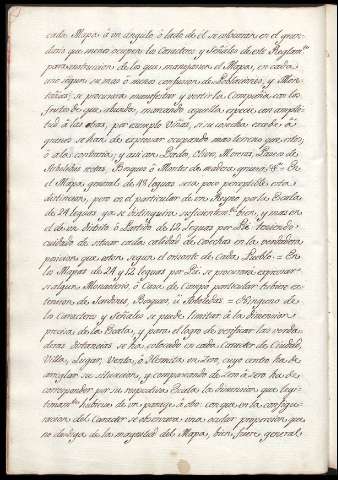 cada Mapa à un angulo, ò lado de el se colocaran en el gran-
dario que menos ocupen los Caracteres y Señales de este Reglam.to
para instruccion de los que manejasen el Mapa, en cada
uno segun su mas ò menos confusion de Poblaciones, y Mon-
tañas; se procurara manifestar y vertir la Campiña con los
frutos de que abunda, marcando aquella especie con ampli-
tud à las otras, por exemplo Viñas, si su cosecha excede à
granos se han de expresar ocupando mas terreno que estos;
ò à la contraria; y asi con Prados, Olivos, Moreras, Plantio de
Arboledas notas, Bosques ò Montes de madera gruesa, &.a = En
el Mapa general de 48 leguas sera poco perceptible esta
distincion, pero en el particular de un Reyno por la Escala
de 24 leguas ya se distinguira suficientem.te bien, y mas en el
de un Distrito ò Partido de 12 leguas por Pie teniendo
cuidado de situar cada calidad de Cosechas en la verdadera
posicion que esten segun el oriente de cada Pueblo = En
los Mapas de 24 y 12 leguas por Pie se procurará expresar
si algun Monasterio, ò Casa de Campo particular tubiere ex-
tension de Jardines, Bosques, ù Arboledas = El grueso de
los Caracteres y Señales se puede limitar à la dimension
precisa de la Escala, y para el logro de verificar las verda-
deras distancias se ha colocado en cada Caracter de Ciudad,
Villa, Lugar, Venta, ò Hermita un Zero, cuyo centro ha de
arreglar su situacion, y comparando de Zero à Zero ha de
corresponder por su respectiva Escala la dimension que legi-
timam.te hubiese de un parage à otro con que en la configu-
racion del Caracter se observara una ocular proporcion que
no desdiga de la magnitud del Mapa, bien fuere general